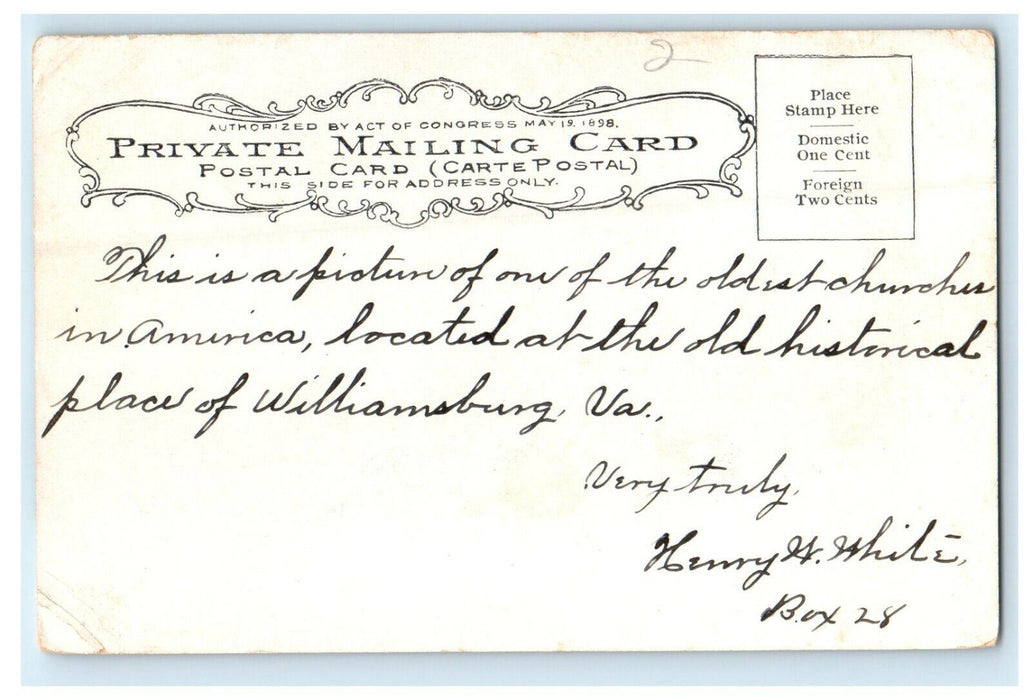 2
AUTHORIZED BY ACT OF CONGRESS MAY 19, 1898.
PRIVATE MAILING CARD
POSTAL CARD (CARTE POSTAL)
THIS SIDE FOR ADDRESS ONLY.
Place
Stamp Here
Domestic
One Cent
Foreign
Two Cents
This is a picture of one of the oldest churches
in America, located at the old historical
place of Williamsburg, Va.,
Very truly,
Henry W. White,
Box 28